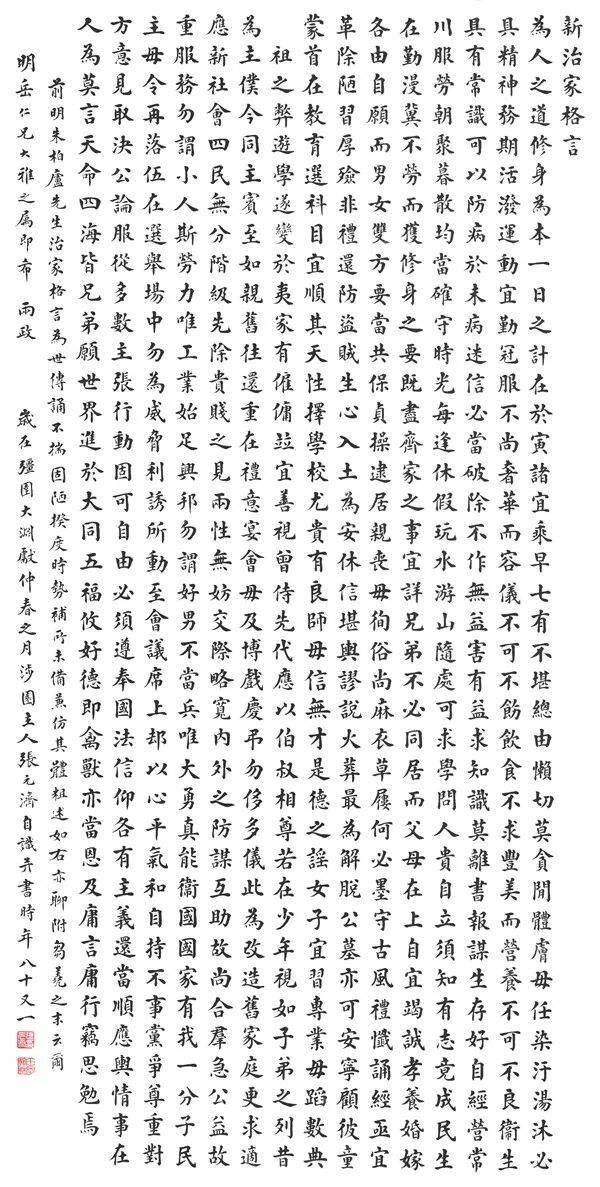 新治家格言
為人之道修身為本一日之計在於寅諸宜乘早七有不堪總由懶切莫貪閒體膚毋任染汙湯沐必
具精神務期活潑運動宜勤冠服不尚奢華而容儀不可不飭飲食不求豐美而營養不可不良衞生
具有常識可以防病於未病迷信必當破除不作無益害有益求知識莫離書報謀生存好自經營常
川服勞朝聚暮散均當確守時光每逢休假玩水游山隨處可求學問人貴自立須知有志竟成民生
在勤漫冀不勞而獲修身之要既盡齊家之事宜詳兄弟不必同居而父母在上自宜竭誠孝養婚嫁
各由自願而男女雙方要當共保貞操逮居親喪毋徇俗尚麻衣草屨何必墨守古風禮懺誦經亟宜
革除陋習厚殮非禮還防盜賊生心入土為安休信堪輿謬說火葬最為解脫公墓亦可安寧顧彼童
蒙首在教育選科目宜順其天性擇學校尤貴有良師毋信無才是德之謠女子宜習專業毋蹈數典
祖之弊遊學遂變於夷家有僱傭竝宜善視曾侍先代應以伯叔相尊若在少年視如子弟之列昔
為主僕今同主賓至如親舊往還重在禮意宴會毋及博戲慶弔勿侈多儀此為改造舊家庭更求適
應新社會四民無分階級先除貴賤之見兩性無妨交際略寬內外之防謀互助故尚合羣急公益故
重服務勿謂小人斯勞力唯工業始足興邦勿謂好男不當兵唯大勇真能衞國國家有我一分子民
主毋令再落伍在選舉場中勿為威脅利誘所動至會議席上却以心平氣和自持不事黨爭尊重對
方意見取決公論服從多數主張行動固可自由必須遵奉國法信仰各有主義還當順應輿情事在
人為莫言天命四海皆兄弟願世界進於大同五福攸好德即禽獸亦當恩及庸言庸行竊思勉焉
前明朱柏廬先生治家格言為世傳誦不揣固陋揆度時勢補所未備蒹仿其體粗述如右亦聊附芻蕘之末云爾
明岳仁兄大雅之屬即希 兩政 歲在彊圉大淵獻仲春之月涉園主人張元濟自識并書時年八十又一